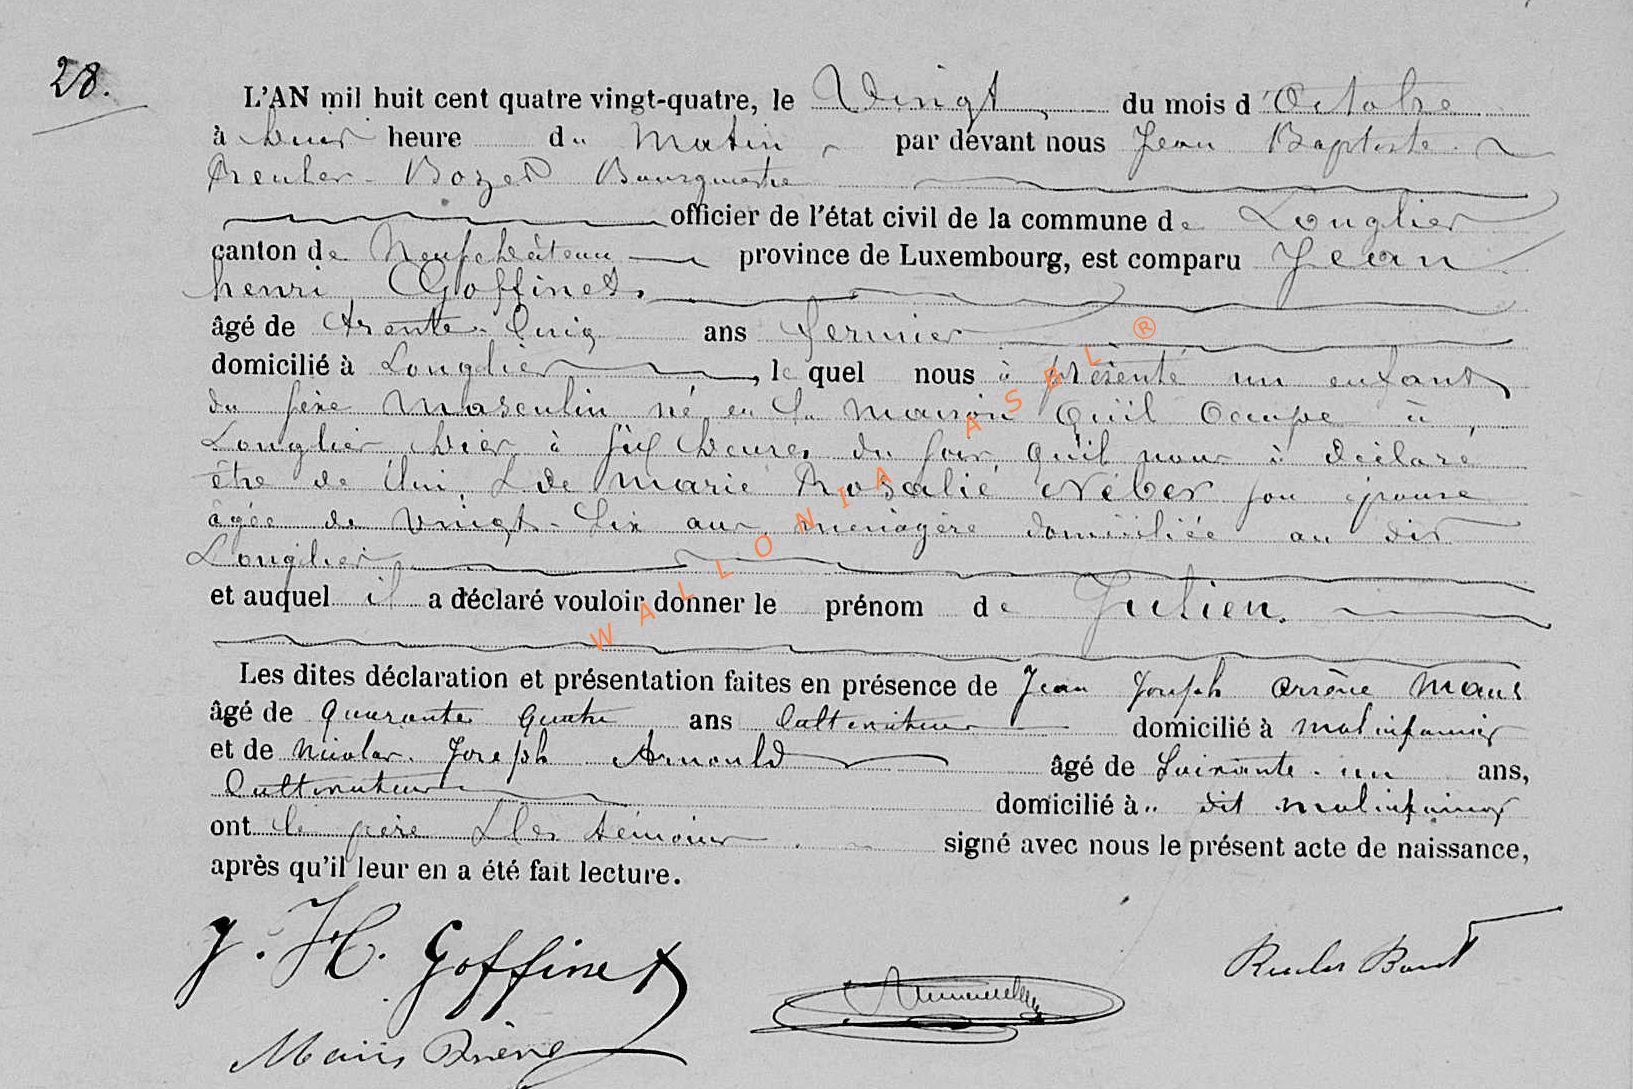 28.
L'AN mil huit cent quatre vingt-quatre, le Vingt du mois d'Octobre
à heure du Matin par devant nous Jean Baptiste
Reuler-Bozet Bourgmestre
officier de l'état civil de la commune de Longlier
canton de Neufchâteau province de Luxembourg, est comparu Jean
henri Goffinet.
âgé de trente-Cinq ans fermier
domicilié à Longlier, le quel nous à présenté un enfant
du sexe Masculin né en la maison qu'il occupe à
Longlier hier à heures du soir, qu'il nous à déclaré
être de lui, & de Marie Rosalie Wéber son épouse
âgée de Vingt-Six ans, ménagère domiciliée au dit
Longlier
et auquel il a déclaré vouloir donner le prénom de Julien.
Les dites déclaration et présentation faites en présence de Jean Joseph Arsène Maus
âgé de quarante quatre ans Cultivateur domicilié à malinfaing
et de Nicolas Joseph Arnould âgé de Soixante-un ans,
Cultivateur domicilié à dit malinfaing
ont le père & les témoins signé avec nous le présent acte de naissance,
après qu'il leur en a été fait lecture.
J. H. Goffinet
Maus Arsène
WALLONIA ASBL ®